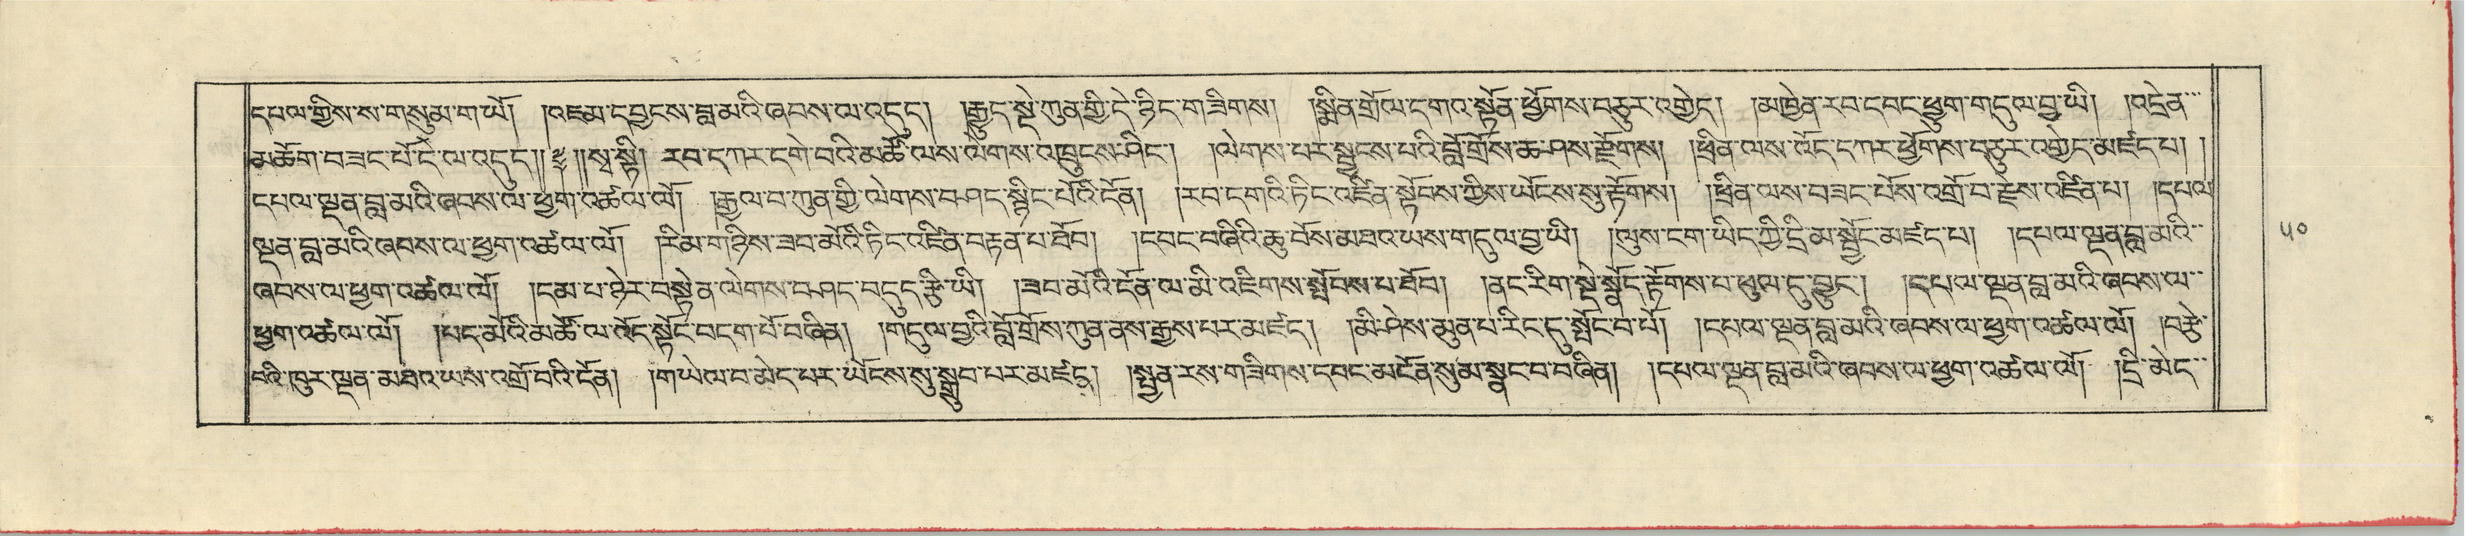 དཔལ་གྱིས་ས་གསུམ་ག་ཡོ། །འཇམ་དབྱངས་བླ་མའི་ཞབས་ལ་འདུད། །རྒྱུད་སྡེ་ཀུན་གྱི་དེ་ཉིད་གཟིགས། །སྨིན་གྲོལ་དགའ་སྟོན་ཕྱོགས་བཅུར་འགྱེད། །མཁྱེན་རབ་དབང་ཕྱུག་གདུལ་བྱ་ཡི། །འདྲེན་
མཆོག་བཟང་པོ་དེ་ལ་འདུད།། ༈ །།སྭ་སྟི། རབ་དཀར་དགེ་བའི་མཚོ་ལས་ལེགས་འཁྲུངས་ཤིང་། །ལེགས་པར་སྦྱངས་པའི་བློ་གྲོས་ཆ་ཤས་རྫོགས། །ཕྲིན་ལས་འོད་དཀར་ཕྱོགས་བཅུར་འགྱེད་མཛད་པ། །
དཔལ་ལྡན་བླ་མའི་ཞབས་ལ་ཕྱག་འཚལ་ལོ། །རྒྱལ་བ་ཀུན་གྱི་ལེགས་བཤད་སྙིང་པོའི་དོན། །རབ་དགའི་ཏིང་འཛིན་སྟོབས་ཀྱིས་ཡོངས་སུ་རྟོགས། །ཕྲིན་ལས་བཟང་པོས་འགྲོ་བ་རྗེས་འཛིན་པ། །དཔལ་
ལྡན་བླ་མའི་ཞབས་ལ་ཕྱག་འཚལ་ལོ། །རིམ་གཉིས་ཟབ་མོའི་ཏིང་འཛིན་བརྟན་པ་ཐོབ། །དབང་བཞིའི་ཆུ་བོས་མཐའ་ཡས་གདུལ་བྱ་ཡི། །ལུས་ངག་ཡིད་ཀྱི་དྲི་མ་སྦྱོང་མཛད་པ། །དཔལ་ལྡན་བླ་མའི་
ཞབས་ལ་ཕྱག་འཚལ་ལོ། །དམ་པ་ཉེར་བསྟེན་ལེགས་བཤད་བདུད་རྩི་ཡི། །ཟབ་མོའི་དོན་ལ་མི་འཇིགས་སྤོབས་པ་ཐོབ། །ནང་རིག་སྡེ་སྣོད་རྟོགས་པ་ཕུལ་དུ་བྱུང་། །དཔལ་ལྡན་བླ་མའི་ཞབས་ལ་
ཕྱག་འཚལ་ལོ། །པད་མོའི་མཚོ་ལ་འོད་སྟོང་བདག་པོ་བཞིན། །གདུལ་བྱའི་བློ་གྲོས་ཀུན་ནས་རྒྱས་པར་མཛད། །མི་ཤེས་མུན་པ་རིང་དུ་སྤོང་བ་པོ། །དཔལ་ལྡན་བླ་མའི་ཞབས་ལ་ཕྱག་འཚལ་ལོ། །བརྩེ་
བའི་ཁུར་ལྡན་མཐའ་ཡས་འགྲོ་བའི་དོན། །གཡེལ་བ་མེད་པར་ཡོངས་སུ་སྒྲུབ་པར་མཛད། །སྤྱན་རས་གཟིགས་དབང་མངོན་སུམ་སྣང་བ་བཞིན། །དཔལ་ལྡན་བླ་མའི་ཞབས་ལ་ཕྱག་འཚལ་ལོ། །དྲི་མེད་
༥༠